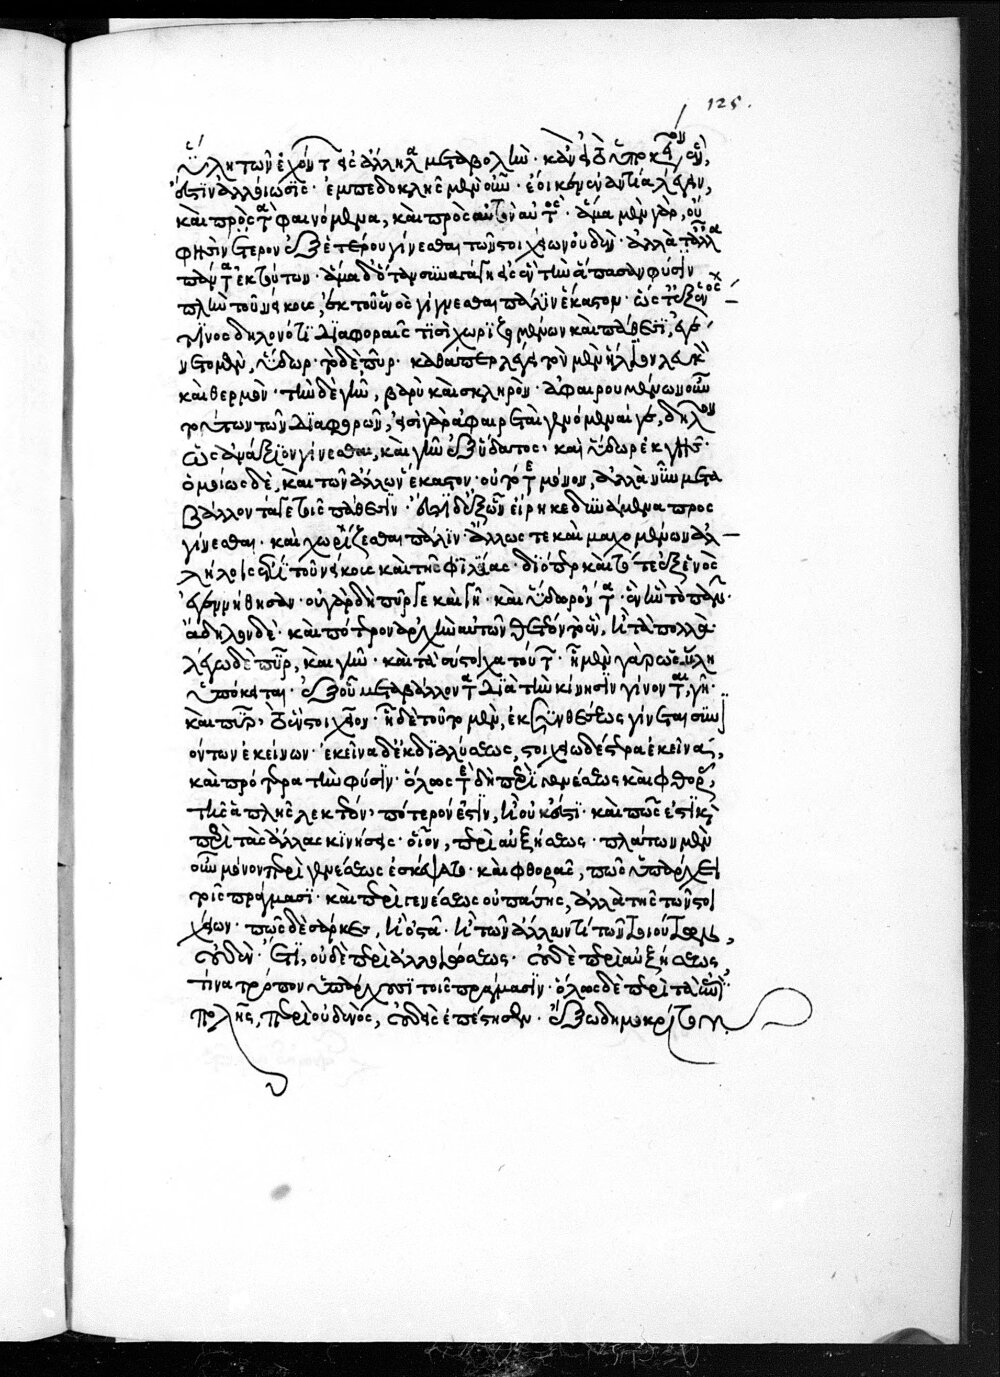 ὕλη τῶν ἐχόντων εἰς ἄλληλα μεταβολὴν· κἂν εἰ τοῦθ' ὑπάρχει τούτων ἓν,
ἐστὶν ἀλλοίωσις· ἐμπεδοκλῆς μὲν οὖν· ἔοικεν ἐναντία λέγειν,
καὶ πρὸς τὰ φαινόμενα, καὶ πρὸς αὐτὸν αὐτός· ἅμα μὲν γὰρ, οὔ
φησιν ἕτερον ἐξ ἑτέρου γίνεσθαι τῶν στοιχείων οὐδὲν· ἀλλὰ τἄλλα
πάντα ἐκ τούτων· ἅμα δ' ὅταν συναγάγη εἰς ἓν τὴν ἅπασαν φύσιν
πλὴν τοῦ νείκους, ἐκ τοῦ ἑνὸς γίγνεσθαι πάλιν ἕκαστον· ὥστ' ἐξ ἑνὸς
τινος δηλονότι διαφοραῖς τισι χωριζομένων καὶ πάθεσι, ἐγέ
νετο μὲν, ὕδωρ· τὸ δὲ πῦρ· καθάπερ λέγει τὸν μὲν ἥλιον λευκὸν
καὶ θερμὸν· τὴν δὲ γῆν, βαρὺ καὶ σκληρὸν· ἀφαιρουμένων οὖν
τούτων τῶν διαφορῶν, εἰσὶ γὰρ ἀφαιρεταὶ γενόμεναί γε, δῆλον
ὡς ἀνάγκη γίνεσθαι, καὶ γῆν ἐξ ὕδατος· καὶ ὕδωρ ἐκ γῆς·
ὁμοίως δὲ, καὶ τῶν ἄλλων ἕκαστον· οὐ τότε μόνον, ἀλλὰ νῦν μετα
βάλλοντά γε τοῖς πάθεσιν· ἔστι δ' ἐξ ὧν εἴρηκε δυνάμενα προσ
γίνεσθαι· καὶ χωρίζεσθαι πάλιν· ἄλλως τε καὶ μαχομένων ἀλ
λήλοις ἔτι τοῦ νείκους καὶ τῆς φιλίας· διόπερ καὶ τότε ἐξ ἑνὸς
ἐγεννήθησαν· οὐ γὰρ δὴ πῦρ γε καὶ γῆ· καὶ ὕδωρ ὄντα· ἓν ἦν τὸ πᾶν·
ἄδηλον δὲ· καὶ πότερον ἀρχὴν αὐτῶν θετέον τὸ ἓν, ἢ τὰ πολλὰ·
λέγω δὲ πῦρ, καὶ γῆν· καὶ τὰ σύστοιχα τούτων· ᾗ μὲν γὰρ ὡς ὕλη
ὑπόκειται· ἐξ οὗ μεταβάλλοντα διὰ τὴν κίνησιν γίνονται, γῆ·
καὶ πῦρ, τὸ ἓν στοιχεῖον· ᾗ δὲ τοῦτο μὲν, ἐκ συνθέσεως γίνεται συνι
όντων ἐκείνων· ἐκεῖνα δ' ἐκ διαλύσεως, στοιχειωδέστερα ἐκεῖνα,
καὶ πρότερα τὴν φύσιν· ὅλως τε δὴ περὶ γενέσεως καὶ φθορᾶς
τῆς ἁπλῆς λεκτέον, πότερον ἔστιν, ἢ οὐκ ἔστι· καὶ πῶς ἐστι· καὶ
περὶ τὰς ἄλλας κινήσεις· οἷον, περὶ αὐξήσεως· πλάτων μὲν
οὖν μόνον περὶ γενέσεως ἐσκέψατο· καὶ φθορᾶς, πῶς ὑπάρχει
τοῖς πράγμασι· καὶ περὶ γενέσεως οὐ πάσης, ἀλλὰ τῆς τῶν στοι
χείων· πῶς δὲ σάρκες, ἢ ὀστᾶ· ἢ τῶν ἄλλων τι τῶν τοιούτων,
οὐδὲν· ἔτι, οὐδὲ περὶ ἀλλοιώσεως· οὐδὲ περὶ αὐξήσεως
τίνα τρόπον ὑπάρχουσι τοῖς πράγμασιν· ὅλως δὲ περὶ τὰ ἐπι
πολῆς, περὶ οὐδενὸς, οὐδεὶς ἐπέστησεν· ἔξω δημοκρίτου.